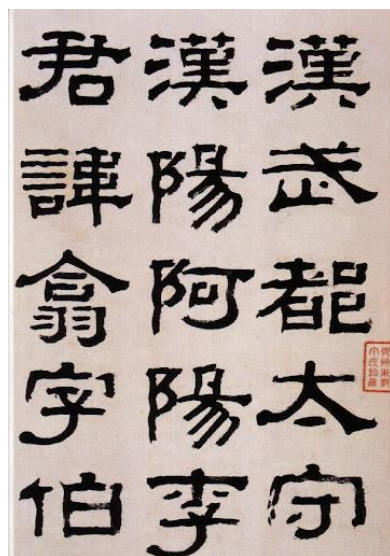 漢武都太守
漢陽阿陽李
君諱翕字伯